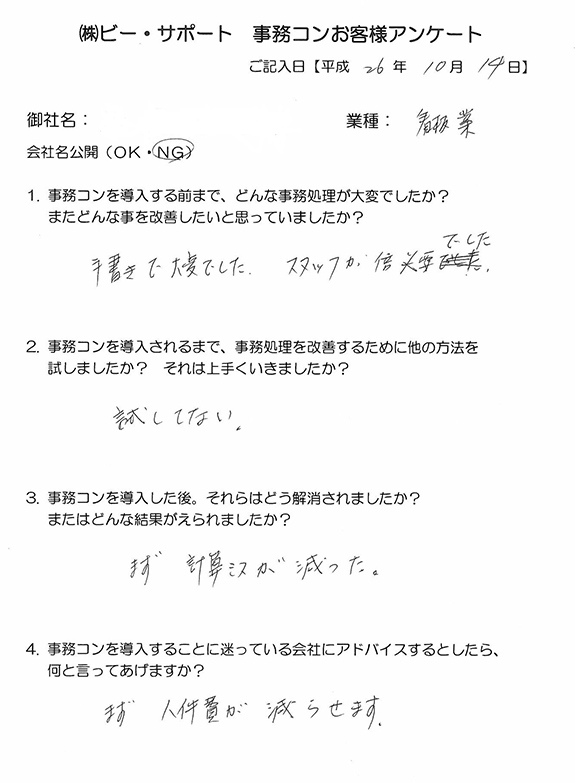 ㈱ビー・サポート 事務コンお客様アンケート
ご記入日【平成 26 年 10 月 14 日】
御社名： 業種： 看板業
会社名公開（OK・NG）
1. 事務コンを導入する前まで、どんな事務処理が大変でしたか？
またどんな事を改善したいと思っていましたか？
でした
手書きで大変でした. スタッフが倍必要.
2. 事務コンを導入されるまで、事務処理を改善するために他の方法を
試しましたか？ それは上手くいきましたか？
試してない。
3. 事務コンを導入した後。それらはどう解消されましたか？
またはどんな結果がえられましたか？
まず 計算ミスが減った。
4. 事務コンを導入することに迷っている会社にアドバイスするとしたら、
何と言ってあげますか？
まず 人件費が 減らせます.